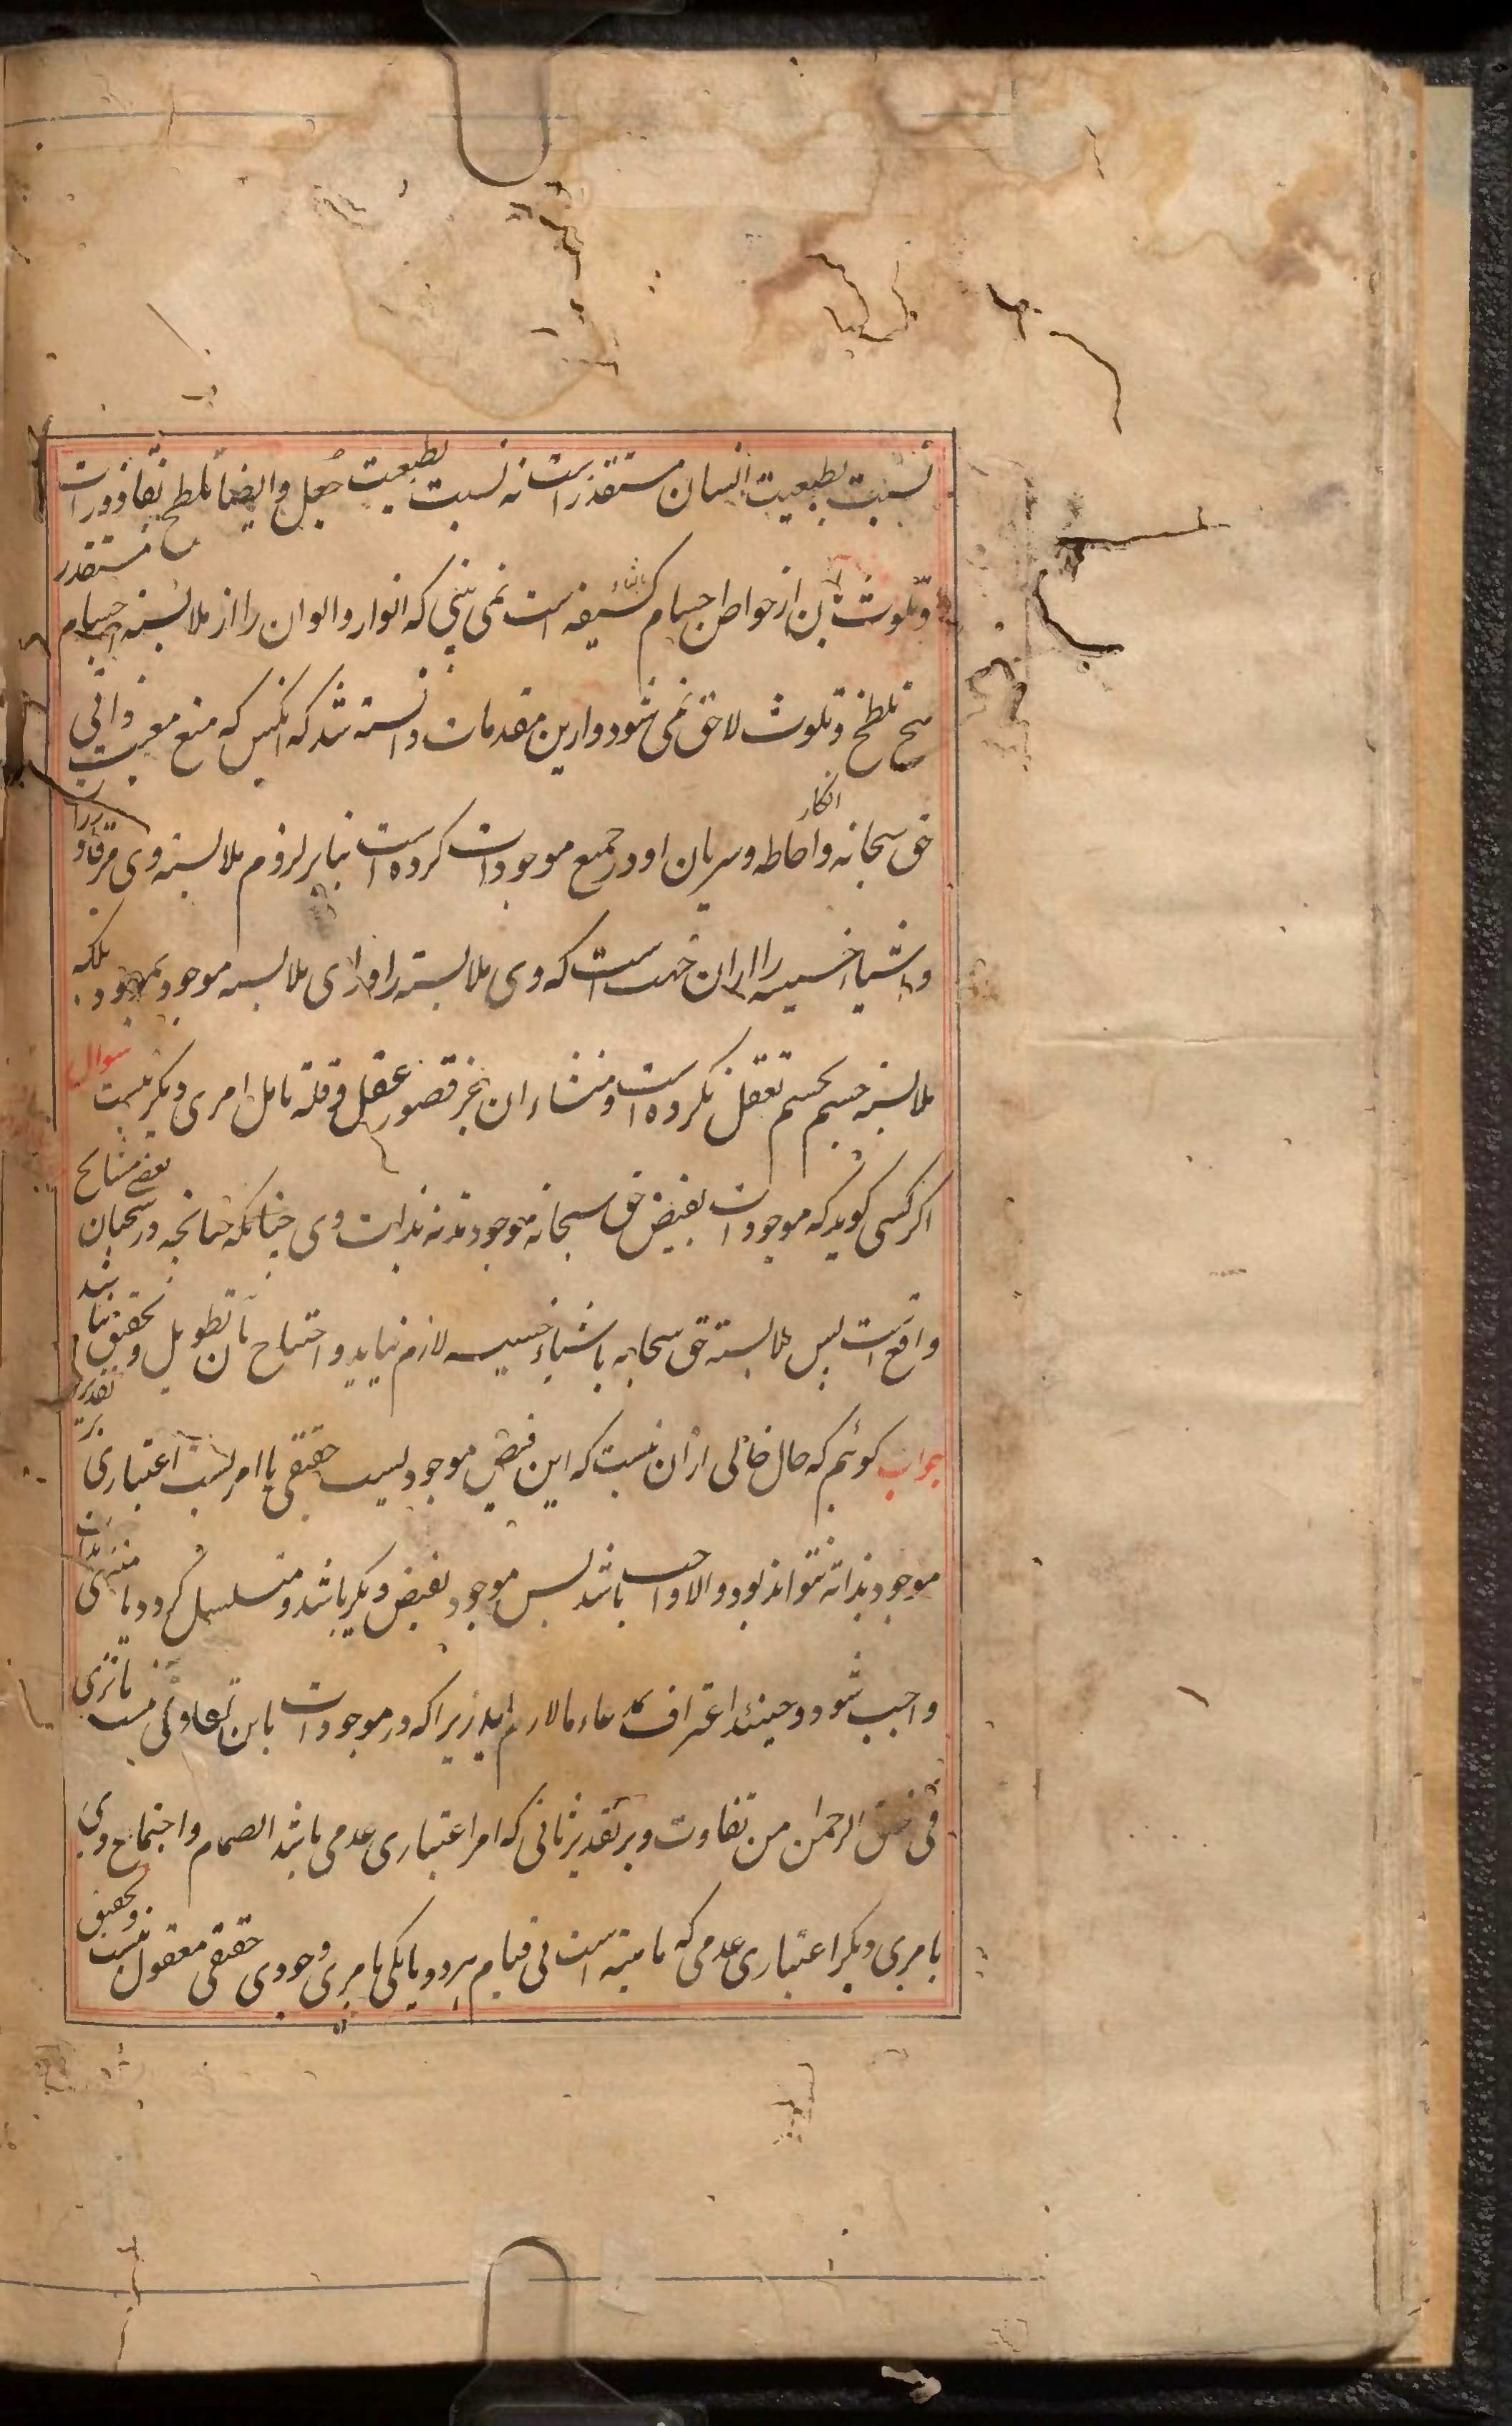 نسبت بطبیعت انسان مستقذر است نه نسبت بطبیعت جعل و ایضا تلطخ بقاذورات
و تلوث بآن از خواص اجسام کثیفه است نمی بینی که انوار و الوان را از ملابسه اجسام مستقذر
هیچ تلطخ و تلوث لاحق نمی شود و ازین مقدمات دانسته شد که آنکس که منع معیت ذاتی
حق سبحانه و احاطه و سریان او در جمیع موجودات انکار کرده است بنابر لزوم ملابسه وی مر قاذورات
و اشیاء خسیسه را از آن جهت است که وی ملابسه را ورای ملابسه موجود بموجود بلکه
ملابسه جسم بجسم تعقل نکرده است و منشاء آن بجز قصور عقل و قلة تامل امری دیگر نیست سوال
اگر کسی گوید که موجودات بفیض حق سبحانه موجودند نه بذات وی چنانکه چنانچه در سخنان بعضی مشایخ
واقع است پس ملابسة حق سبحانه باشیاء خسیسه لازم نیاید و احتیاج بآن تطویل و تحقیق نباشد
جواب گوئیم که حال خالی از آن نیست که این فیض موجودیست حقیقی یا امریست اعتباری بر تقدیر
موجود بذاته نتواند بود و الا واجب باشد پس موجود بفیض دیگر باشد و متسلسل گردد یا منتهی بذات
واجب شود و حینئذ اعتراف بمدعاء ما لازم آید زیرا که در موجودات باین تفاوتی نیست ما تری
فی خلق الرحمن من تفاوت و بر تقدیر ثانی که امر اعتباری عدمی باشد انضمام و اجتماع وی
بامری دیگر اعتباری عدمی که ماهیة است بی قیام هر دو یا یکی بامری وجودی حقیقی معقول نیست و تحقیق